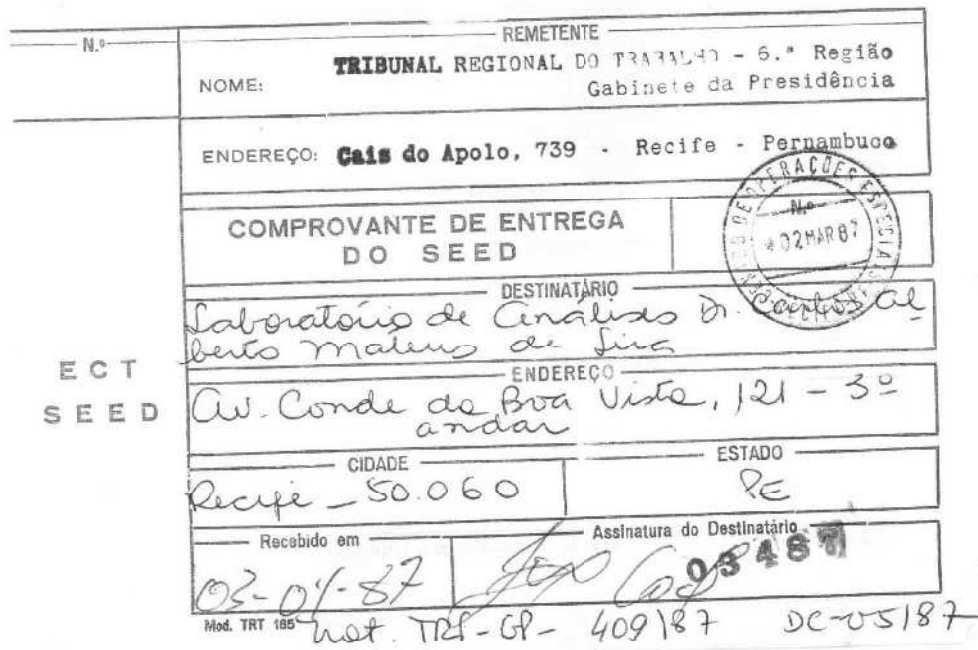 N.º
REMETENTE
NOME: TRIBUNAL REGIONAL DO TRABALHO - 6.ª Região
Gabinete da Presidência
ENDEREÇO: Cais do Apolo, 739 - Recife - Pernambuco
COMPROVANTE DE ENTREGA
DO SEED
N.º
OPERAÇÕES ESPECIAIS
02 MAR 87
DESTINATÁRIO
Laboratório de Análises Dr. Carlos Al
berto Mateus de Lira
ECT
SEED
ENDEREÇO
Av. Conde da Boa Vista, 121 - 3º
andar
CIDADE
Recife - 50.060
ESTADO
PE
Recebido em
03-04-87
Assinatura do Destinatário
03487
Mod. TRT 165
not. TRT-GP- 409/87 DC-05/87